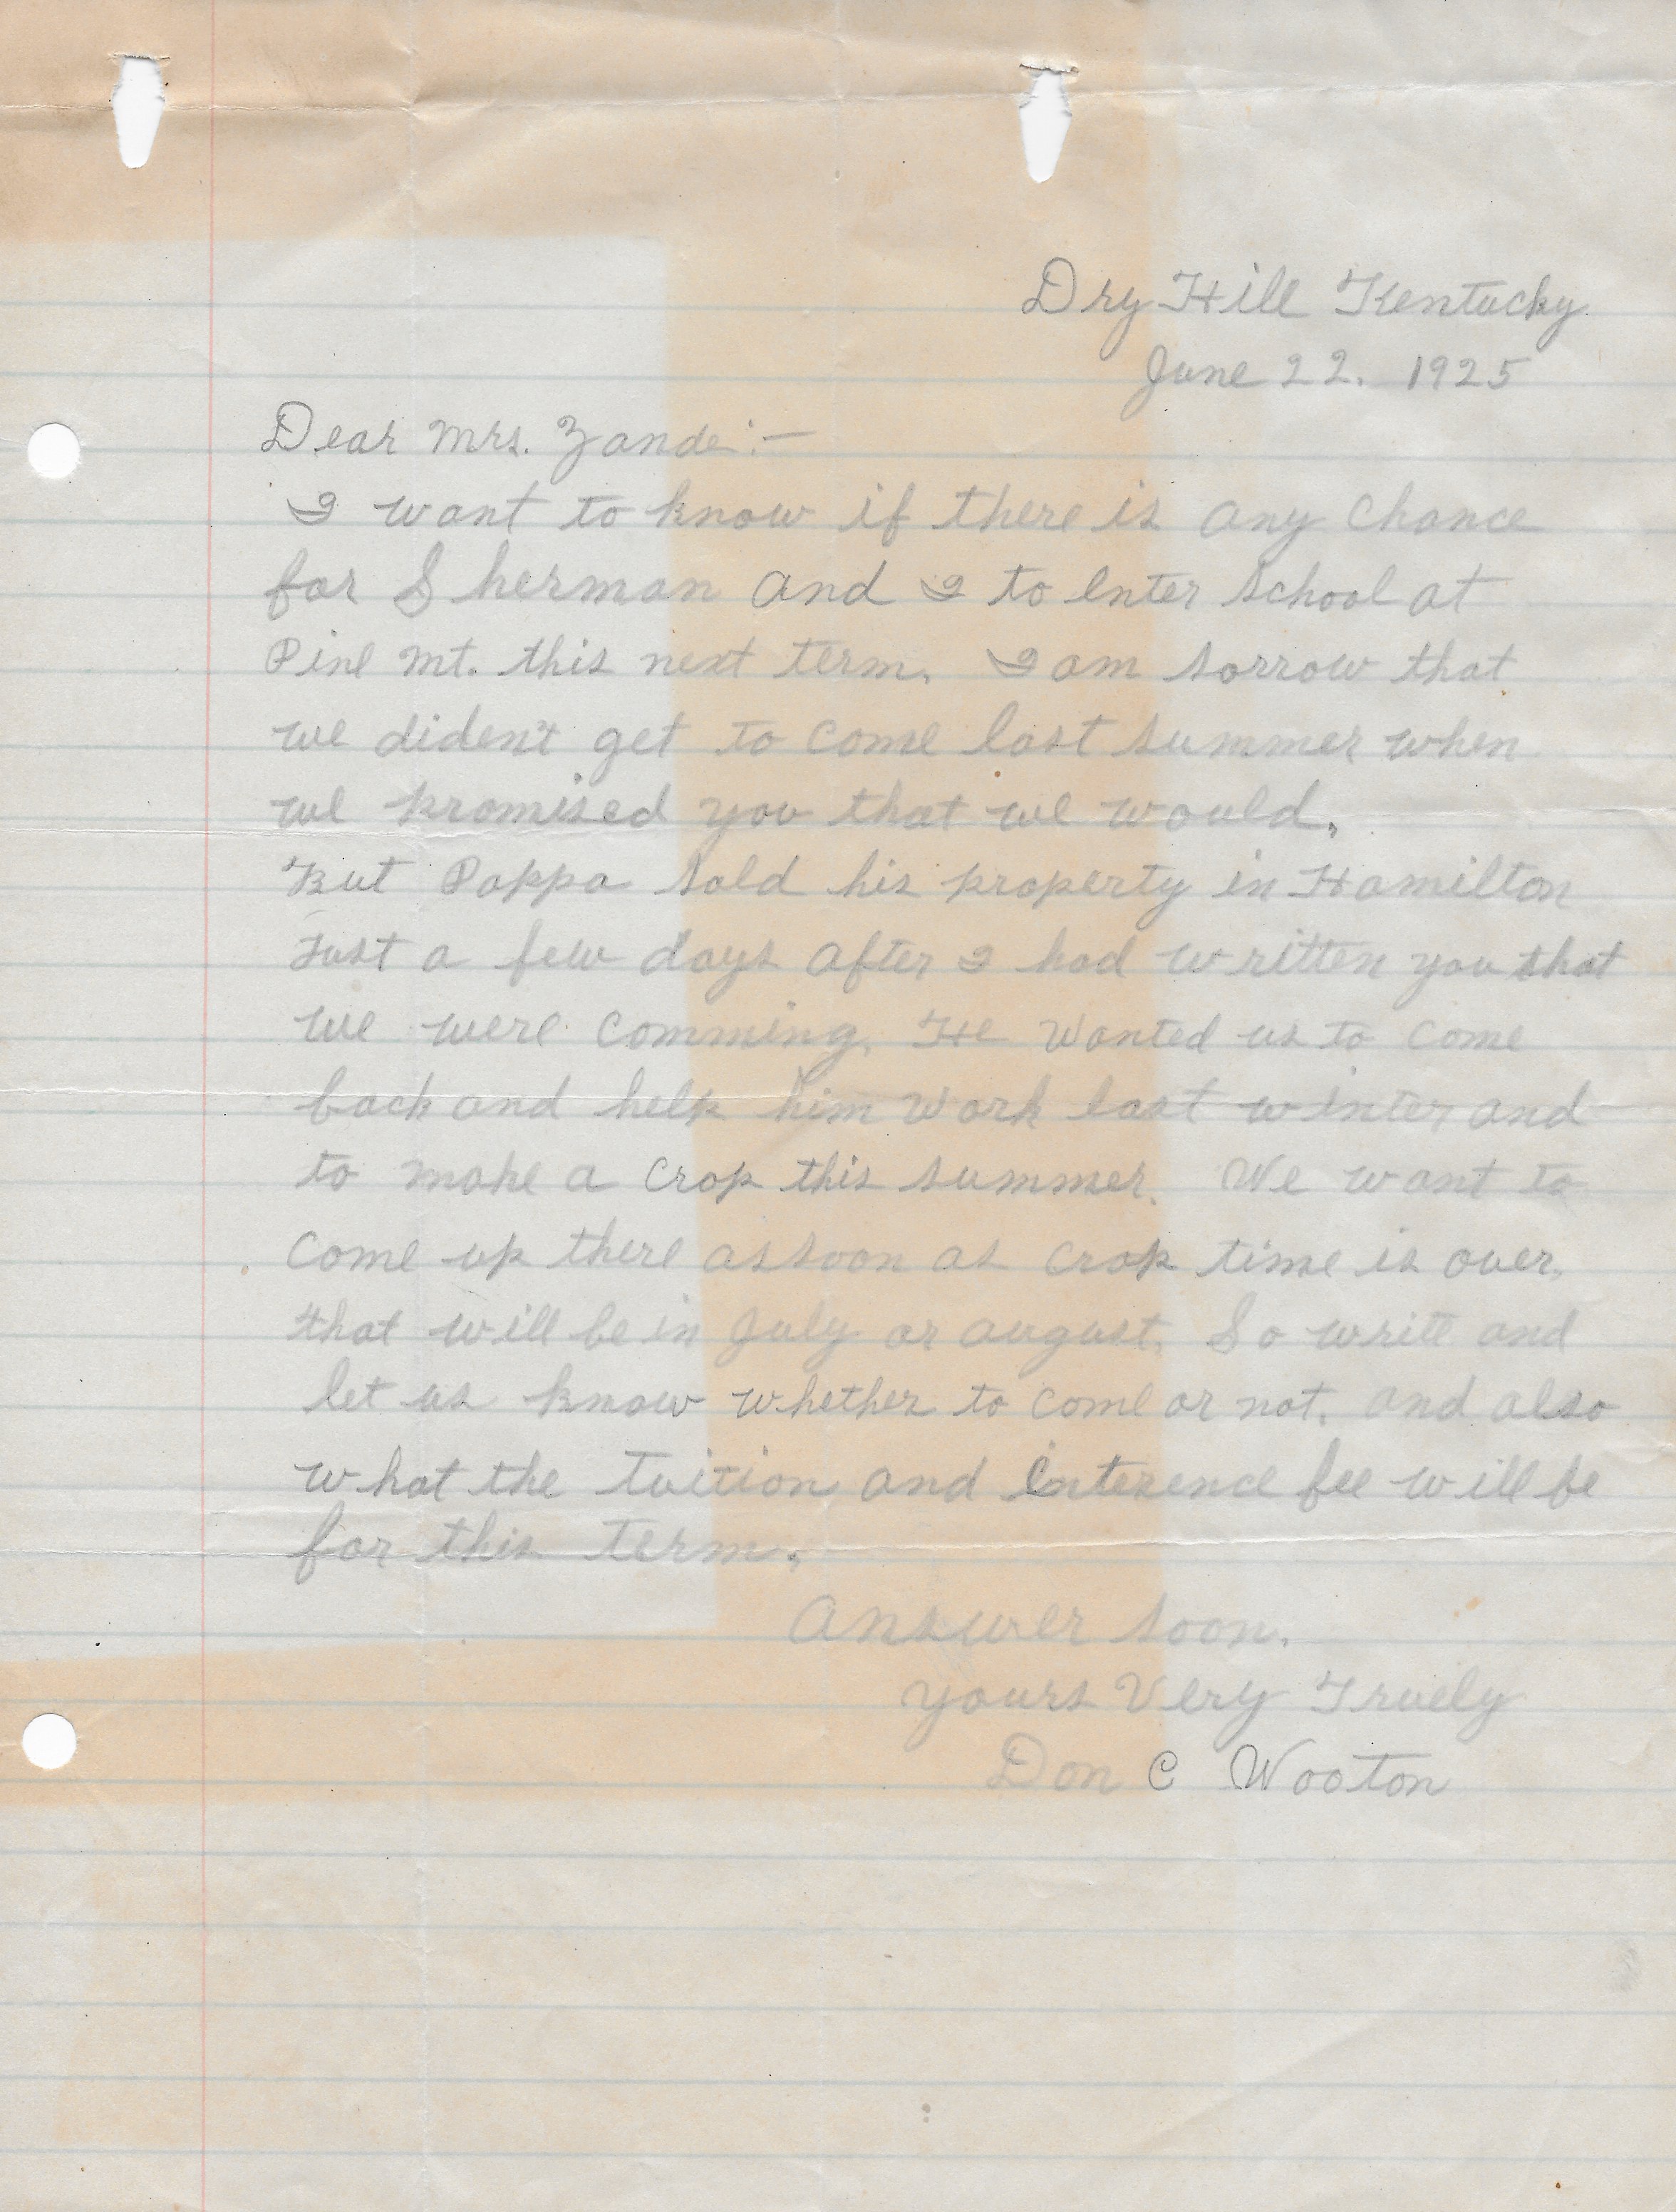 Dry Hill Kentucky.
June 22. 1925
Dear Mrs. Zande:-
I want to know if there is any chance
for Sherman and I to enter school at
Pine Mt. this next term. I am sorrow that
we diden't get to come last summer when
we promised you that we would.
But Pappa sold his property in Hamilton
Just a few days after I had written you that
we were comming. He wanted us to come
back and help him work last winter and
to make a crop this summer. We want to
come up there as soon as crop time is over.
that will be in July or august. So write and
let us know whether to come or not. and also
what the tuition and enterence fee will be
for this term.
Answer soon.
Yours Very Truely
Don C Wooton